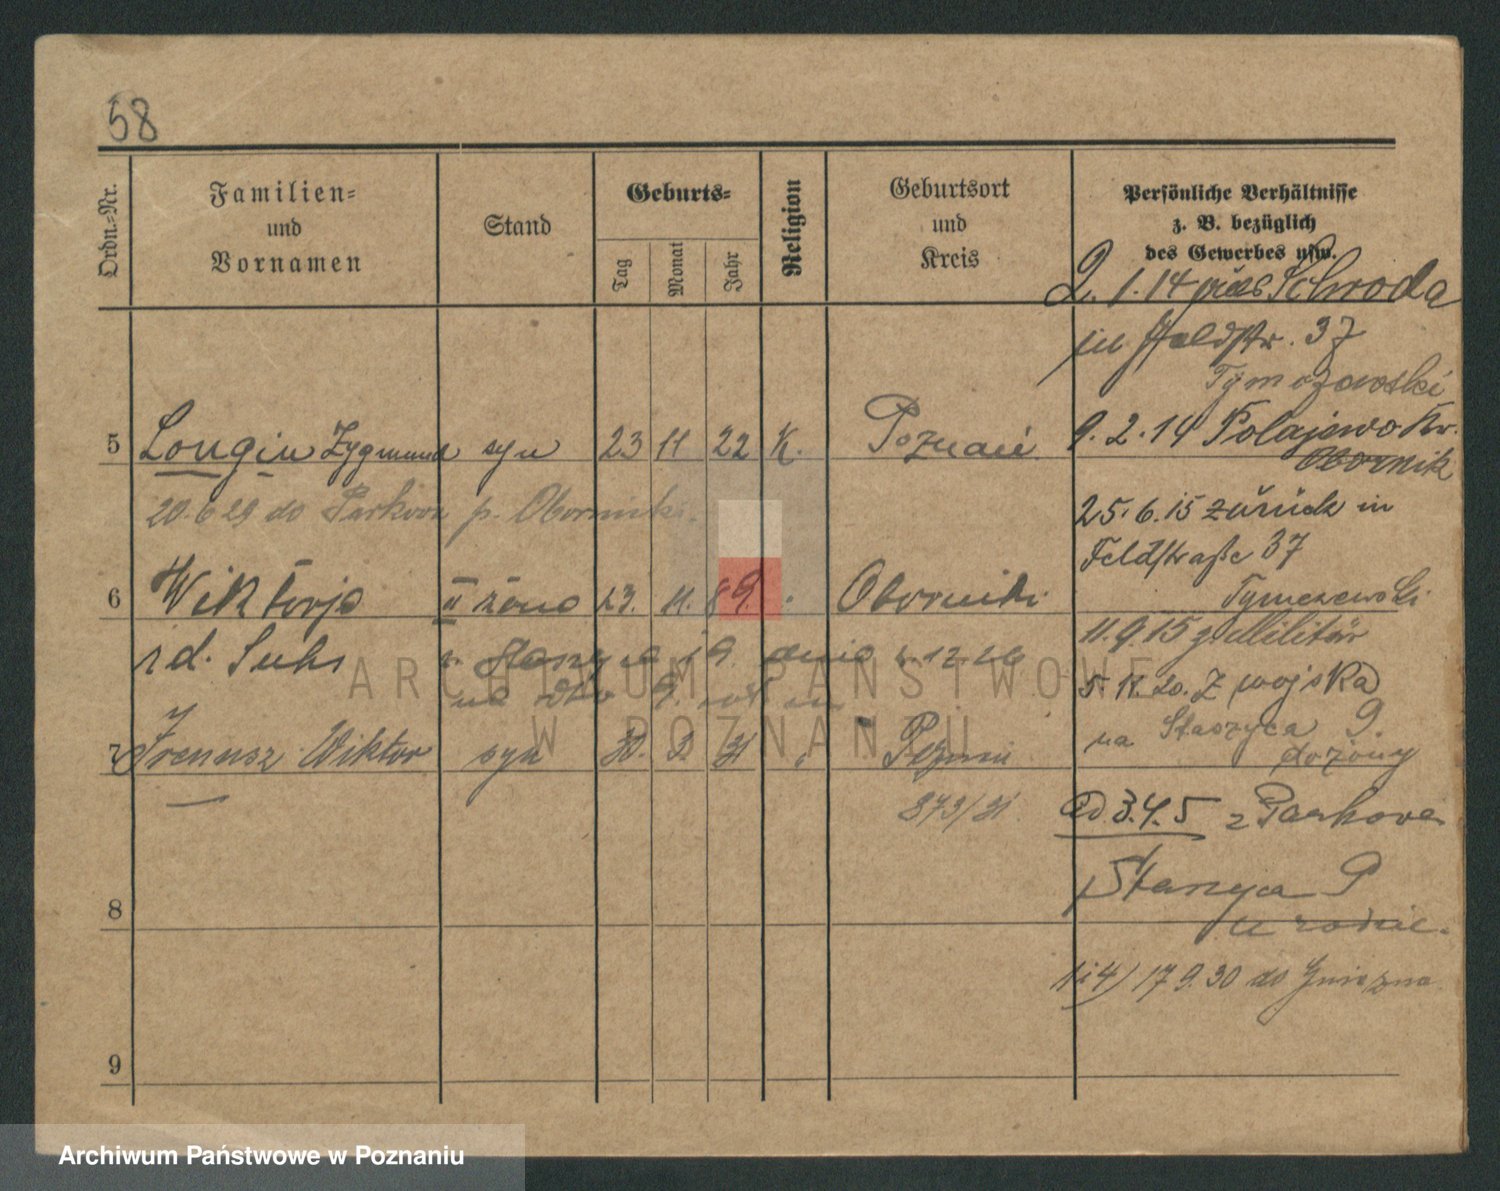 58
Ordn.-Nr.
Familien-
und
Vornamen
Stand
Geburts-
Tag
Monat
Jahr
Religion
Geburtsort
und
Kreis
Persönliche Verhältnisse
z. B. bezüglich
des Gewerbes usw.
2. 1. 14 Schroda
in Feldstr. 37
Tymczewski
9. 2. 14 Polajewo Kr.
Obornik
5 Longin Zygmund syn 23 11 22 K. Poznań
25. 6. 15 zurück in
20. 6 29 do Parkowa p. Oborniki.
Feldstraße 37
Tymczewski
6 Wiktorja II żona 23. 11. 89. Oborniki
11. 9. 15 z. Militär
5. 11. 20. z wojska
na Staszyca 9.
do żony
7 Ireneusz Wiktor syn 30. 2. 31 Pozna
873/31
ad 3. 4. 5 z Parkowa
Staszyca 9
u rodzic.
8
1 i 4) 17 9. 30 do Gniezna
9
ARCHIWUM PAŃSTWOWE
W POZNANIU
Archiwum Państwowe w Poznaniu